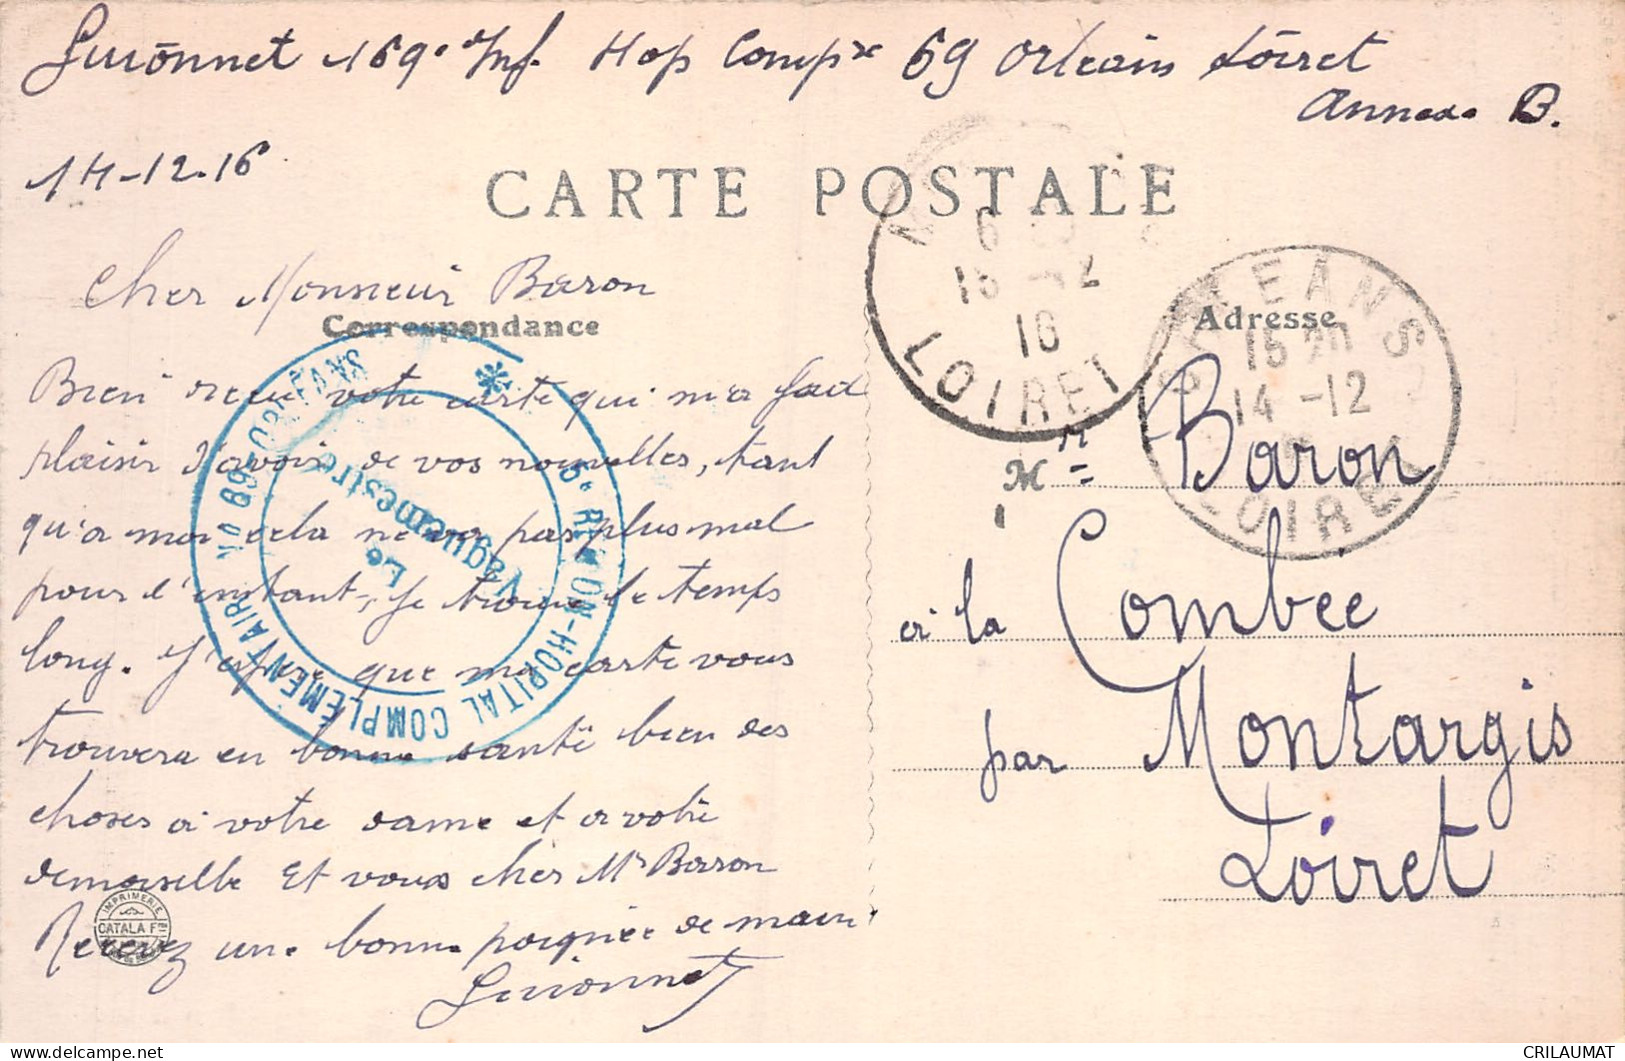 Guionnet 169e Inf. Hop Compre 69 Orléans Loiret
Annexe B.
14-12-16
CARTE POSTALE
Cher Monsieur Baron
Correspondance
Bien recu votre carte qui m'a fait
plaisir d'avoir de vos nouvelles, tant
qu'a moi cela ne va pas plus mal
pour l'instant, je trouve le temps
long. J'espère que ma carte vous
trouvera en bonne santé bien des
choses a votre dame et a votre
demoiselle Et vous cher Mr Baron
Recevez une bonne poignée de main
Guionnet
5e REGION-HOPITAL COMPLEMENTAIRE No 69-ORLEANS
Le
Vaguemestre
IMPRIMERIE
CATALA F
6
15 -12
16
LOIRET
ORLEANS
15
14 -12
LOIRET
Adresse
Mr Baron
a la Combée
par Montargis
Loiret
CRILAUMAT
delcampe.net